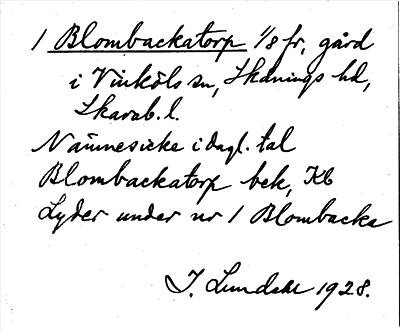 1 Blombackatorp 1/8 fr, gård
i Vinköls sn, Skånings hd,
Skarab. l.
Nämnes icke i dagl. tal
Blombackatorp bek, Kb
Lyder under nr 1 Blombacka
J. Lundahl 1928.